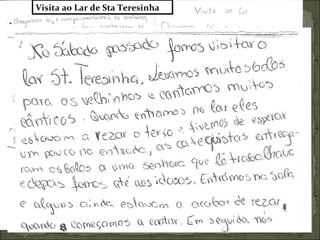 Visita ao Lar de Sta Teresinha
Visita ao Lar
No Sábado passado fomos visitar o
lar St. Teresinha, levamos muitos bolos
para os velhinhos e cantamos muitos
cânticos. Quando entramos no lar eles
estavam a rezar o terço e tivemos de esperar
um pouco na entrada, as catequistas entrega-
ram os bolos a uma senhora que lá trabalhava
e depois fomos até aos idosos. Entrámos na sala
e alguns ainda estavam a acabar de rezar,
quando começamos a cantar. Em seguida nós